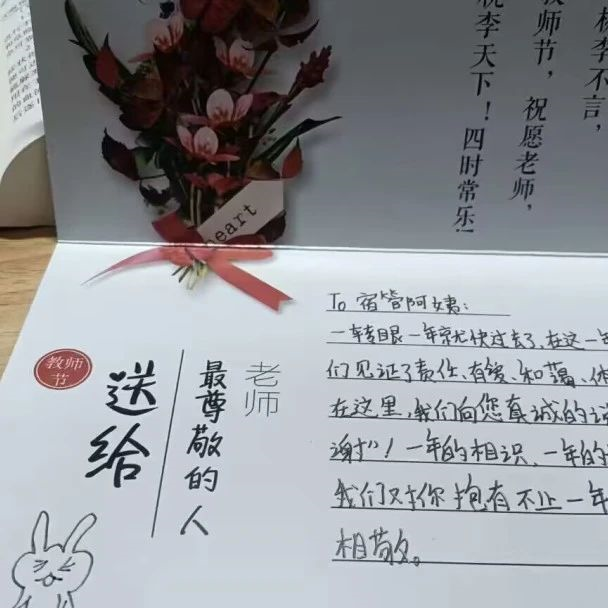 李不言，
教师节，祝愿老师，
桃李天下！四时常乐！
heart
教师
节
送给
老师
最尊敬的人
To 宿管阿姨:
一转眼一年就快过去了,在这一年
们见证了责任、有爱、和蔼、
在这里,我们向您真诚的
谢"! 一年的相识、一年的
我们对你抱有不止一年
相敬。